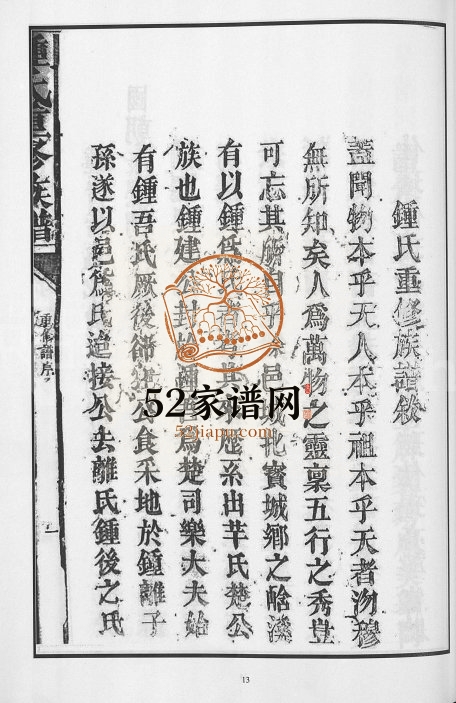 鍾氏重修族譜敘
蓋聞物本乎天人本乎祖本乎天者沕穆
無所知矣人為萬物之靈稟五行之秀豈
可忘其所自乎邑賓城鄉之
有以鍾氏者系出芈氏楚公
族也鍾建公封為楚司樂大夫始
有鍾吾氏厥後公食采地於鍾離子
孫遂以邑為氏迨接公去離氏鍾後之氏
鍾氏重修族譜
重修譜序
一
52家谱网
52jiapu.com
13